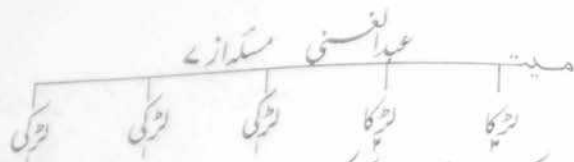 میت عبدالغنی مسئلہ از ۷
لڑکا لڑکا لڑکی لڑکی لڑکی
۲ ۲ ۱ ۱ ۱